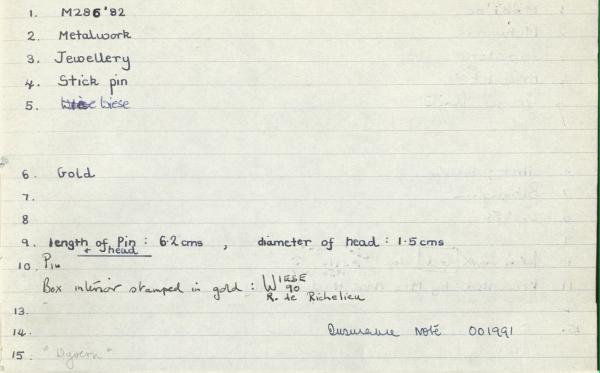 1. M286'82
2. Metalwork
3. Jewellery
4. Stick pin
5. Wiese
6. Gold
7.
8
9. length of Pin : 6.2 cms , diameter of head : 1.5 cms
+ head
10. Pin
Box interior stamped in gold : WIESE
90
R. de Richelieu
13.
14. Insurance Note 001991
15. "Wyvern"